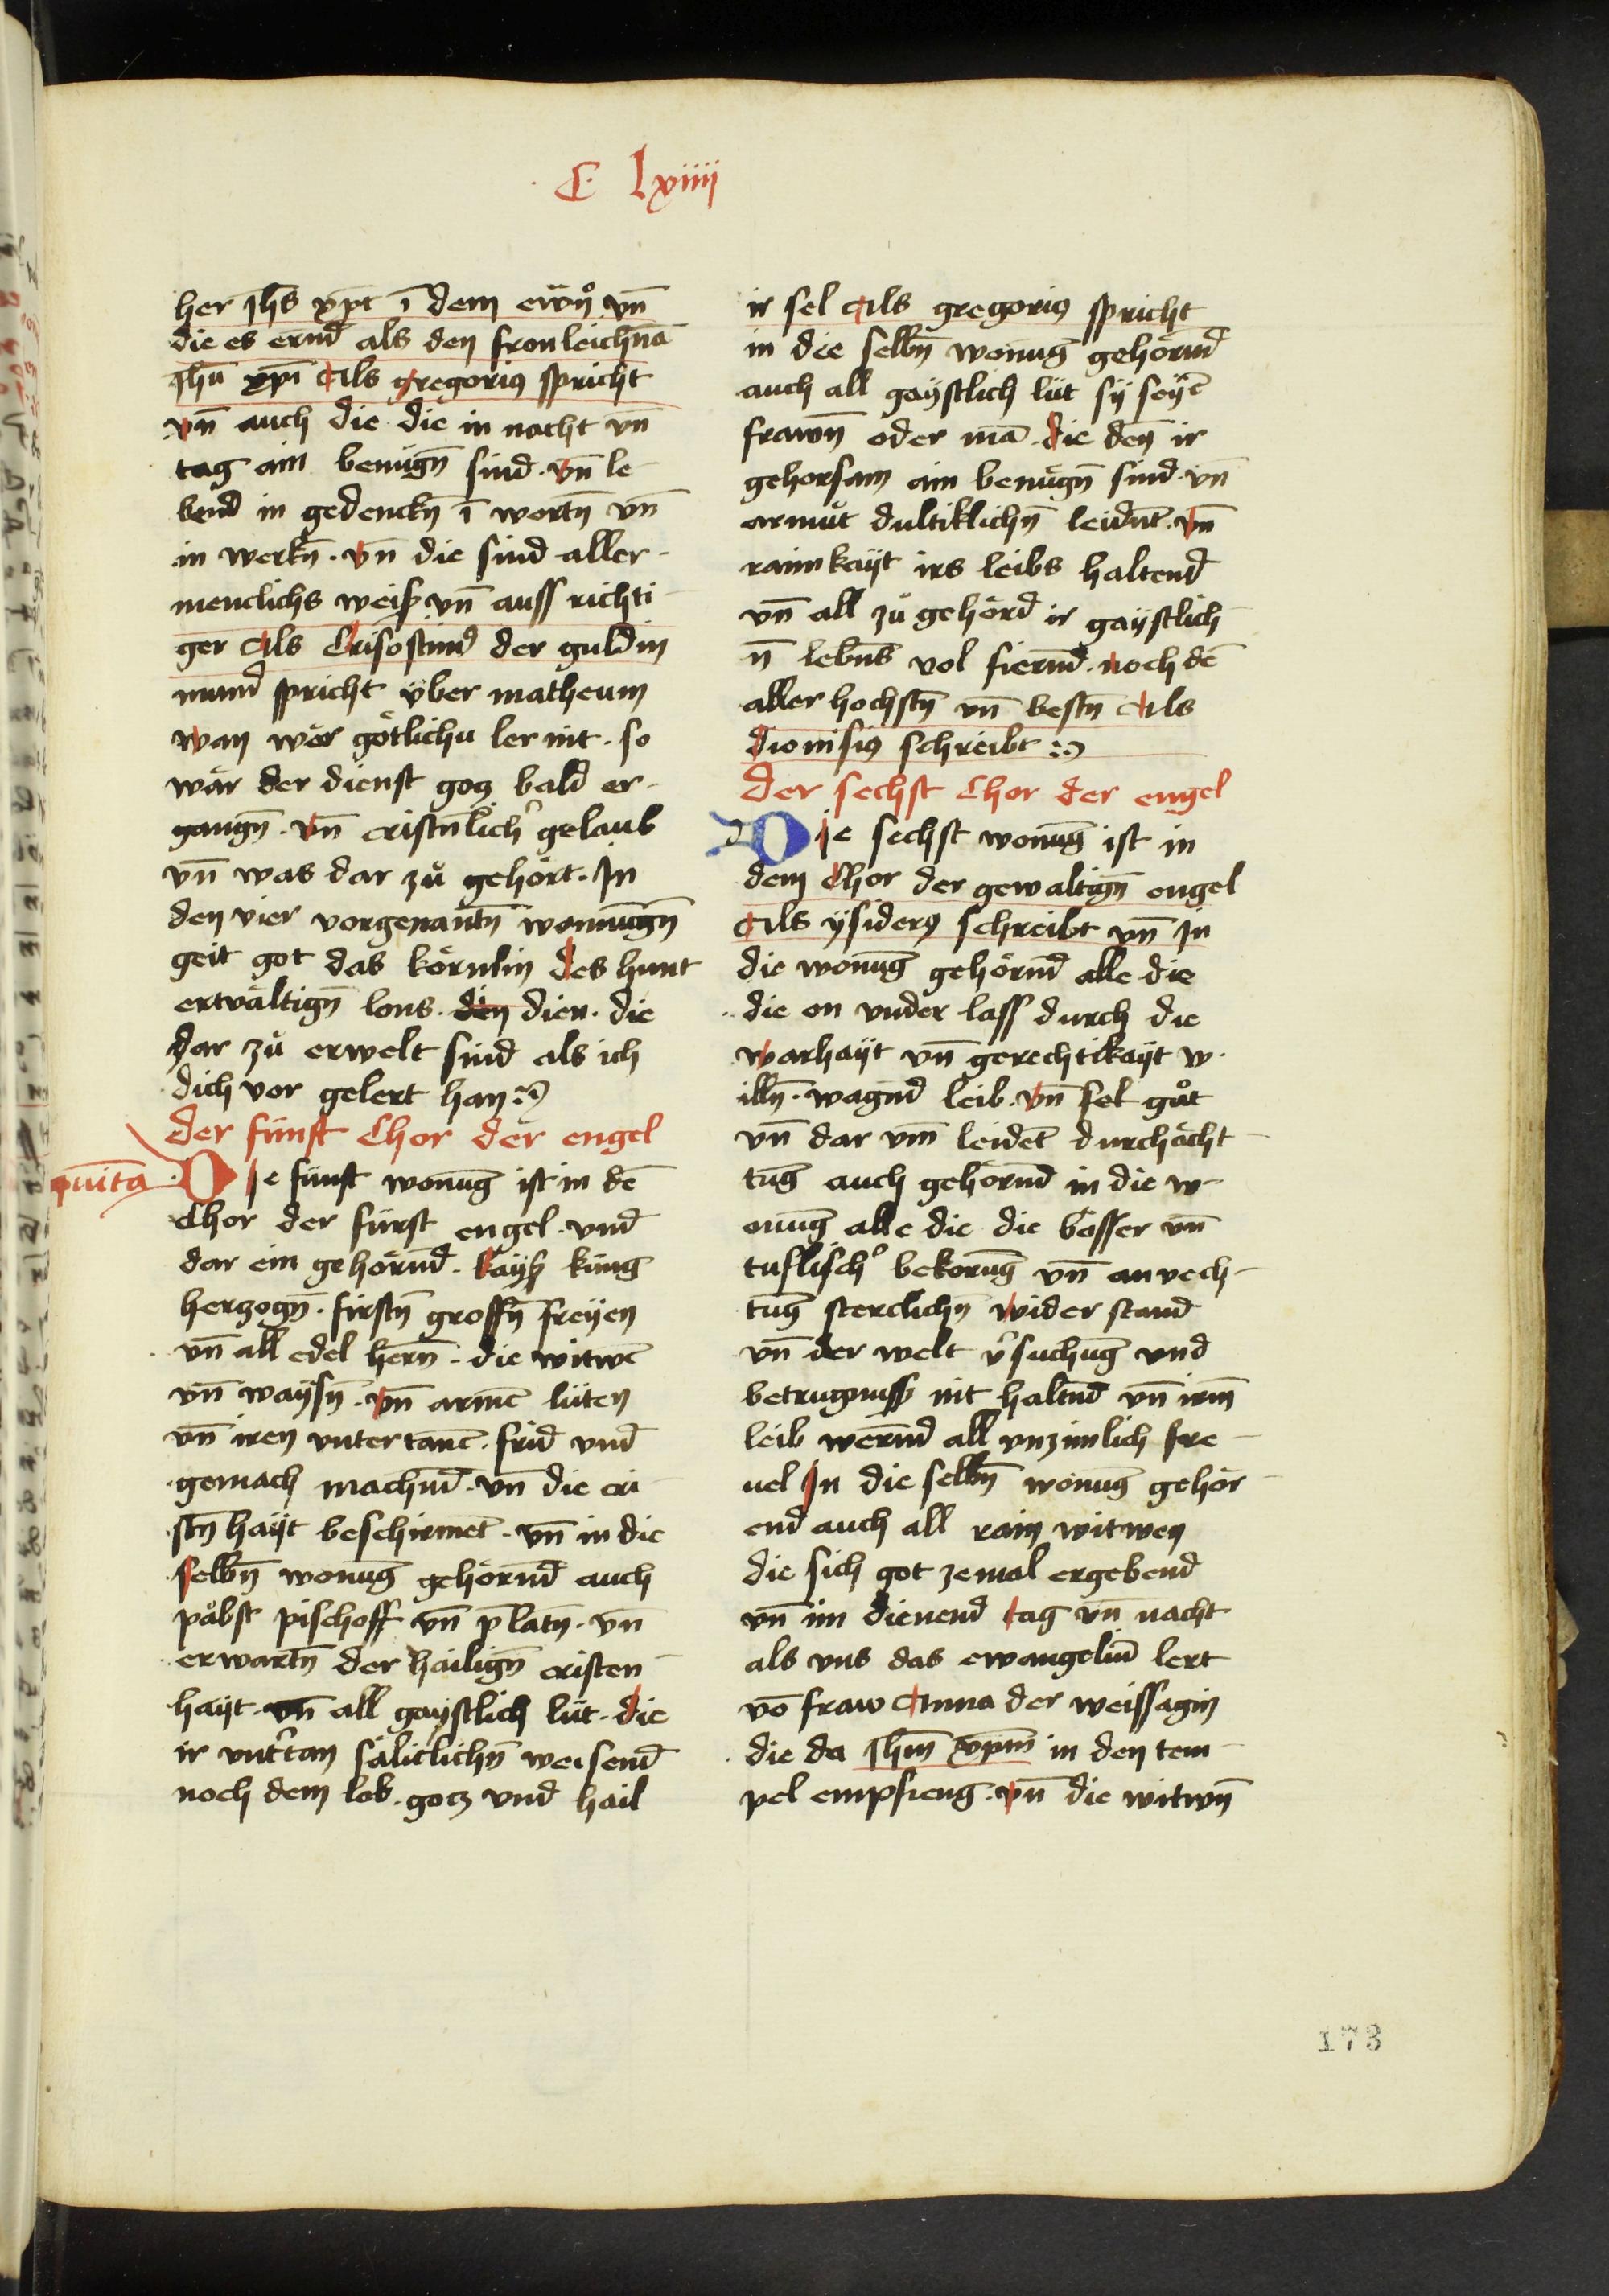 C lxiiii
her jh̄s xp̄t ī dem ewn̄ vn̄
die es ernd̄ als den fronleichnā
jhū xp̄i Als gregorius spricht
vn̄ auch die die in nacht vn̄
tag ain benügn̄ sind · vn̄ le-
bend in gedenckn̄ ī wortn̄ vn̄
in werkn̄ · vn̄ die sind aller-
menclichs weiß vn̄ auss richti-
ger Als Crisostim̄ der guldin
mund spricht über matheum
wan wär götlichu ler nit · so
wär der dienst gotz bald er-
gangn̄ · vn̄ cristn̄lich̓ gelaub
vn̄ was dar zů gehört · Jn
den vier vorgenantn̄ wonūgn̄
geit got das körnlin des hunt
ertvältign̄ lons · den dien · die
dar zů erwelt sind als ich
dich vor gelert han :~
der fünft Chor der engel
quinta
DJe fünft wonūg ist in dē
Chor der fürst engel · vnd
dar ein gehörnd̄ · kayß küng
hertzogn̄ · firstn̄ groffn̄ freyen
vn̄ all edel hern̄ · die witwē
vn̄ waysn̄ · vn̄ armē lüten
vn̄ iren vntertanē · frid vnd
gemach machnd̄ · vn̄ die cri-
stn̄ hayt beschirmēt · vn̄ in die
selbn̄ wonūg gehörnd̄ auch
päbst pischoff vn̄ p̄latn̄ · vn̄
erwartn̄ der hailign̄ cristen-
hayt · vn̄ all gaystlich lüt · die
ir vnt̓tan säliclichn̄ weisend
noch dem lob · gotz vnd hail
ir sel Als gregorius spricht
in die selbn̄ wonūg gehörnd̄
auch all gaystlich lüt sy seyē
frawn̄ oder mā · die den ir
gehorsam ain benügn̄ sind · vn̄
armůt dultiklichn̄ leidnt̄ · vn̄
rainikayt irs leibs haltend
vn̄ all zů gehörd ir gaystlich-
n̄ lebn̄s vol fiernd̄ · noch dē
aller hochstn̄ vn̄ bestn̄ Als
dionisius schreibt :~
der sechst Chor der engel
DJe sechst wonūg ist in
dem Chor der gewaltign̄ engel
Als ysiderus schreibt vn̄ Jn
die wonūg gehörnd̄ alle die
die on vnder lass durch die
warhayt vn̄ gerechtikayt w-
illn̄ · wagnd̄ leib · vn̄ sel gůt
vn̄ dar vm̄ leidēt durchächt-
tūg auch gehörnd̄ in die w-
onūg alle die die bösser vn̄
tuflisch̓ bekorūg vn̄ anvech-
tūg sterclichn̄ wider stand
vn̄ der welt v̓suchūg vnd
betrugnuß nit haltnd̄ vn̄ irm̄
leib wernd̄ all vnzimlich fre-
uel Jn die selbn̄ wonūg gehör-
end auch all rain witwen
die sich got zemal ergebend
vn̄ im dienend tag vn̄ nacht
als vns das ewangeliū lert
vō fraw Anna der weissagin
die da jhm̄ xpm̄ in den tem-
pel empfieng · vn̄ die witwn̄
173